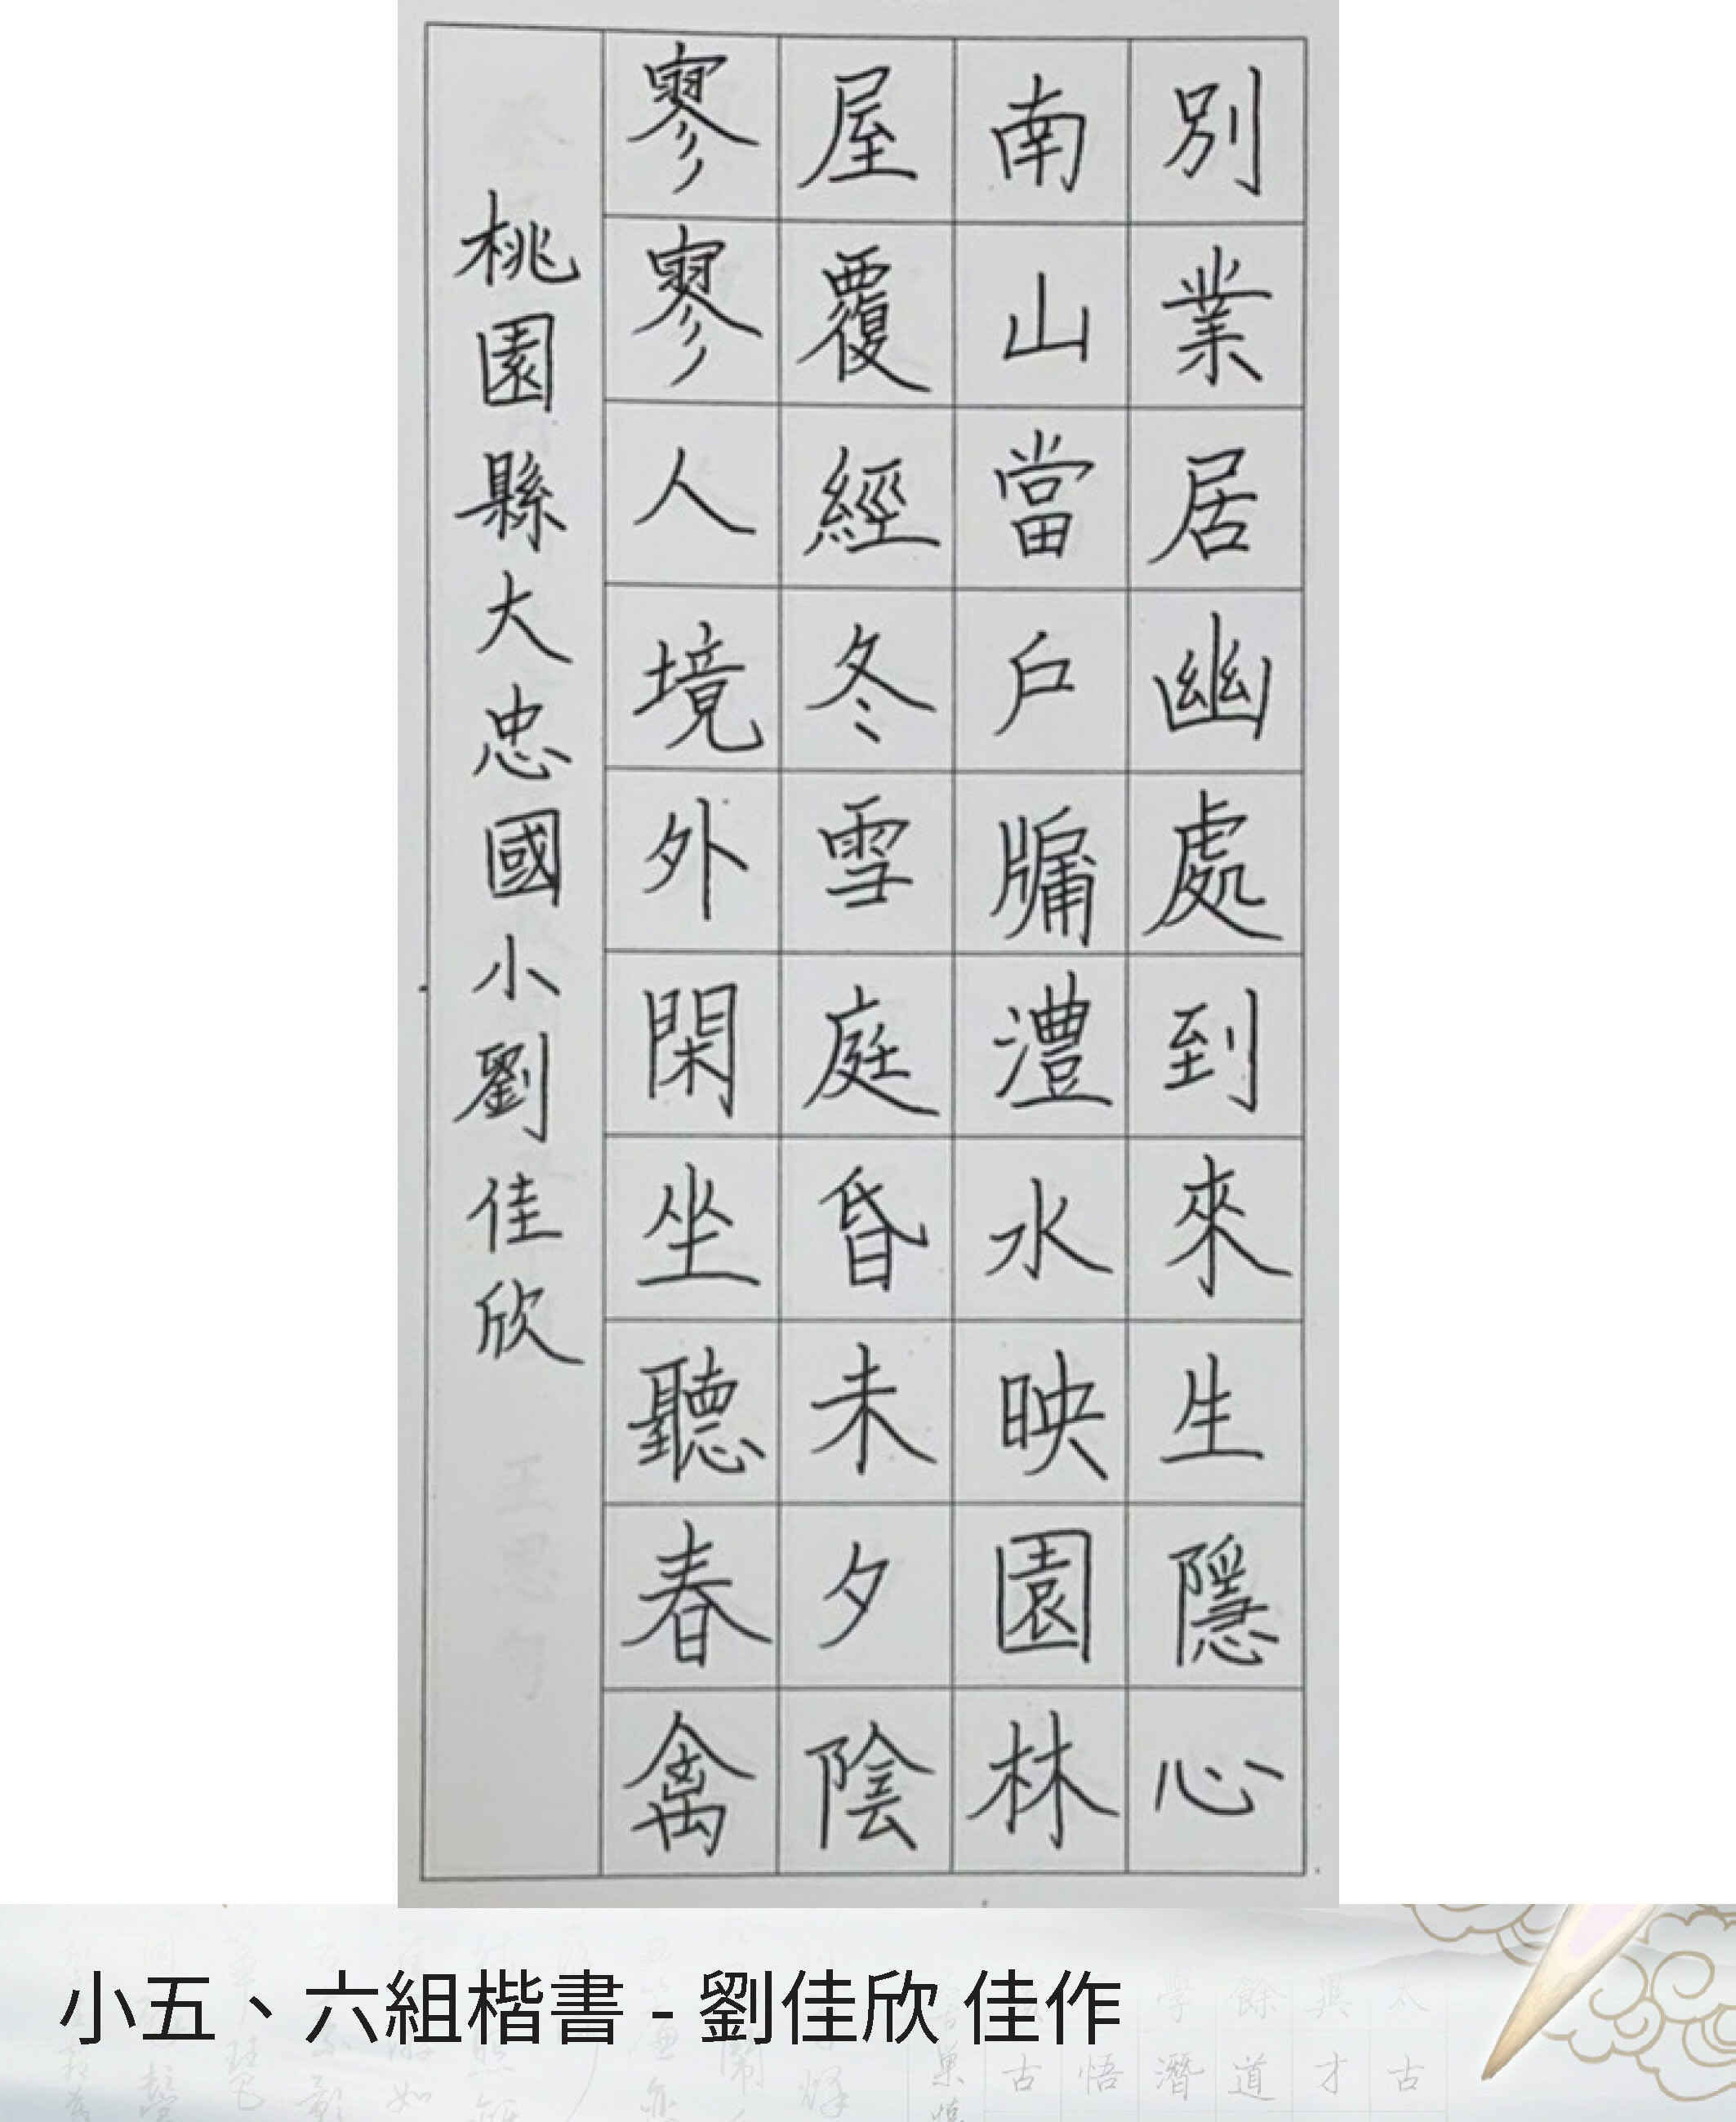 別業居幽處到來生隱心
南山當戶牖澧水映園林
屋覆經冬雪庭昏未夕陰
寥寥人境外閑坐聽春禽
桃園縣大忠國小劉佳欣
小五、六組楷書 - 劉佳欣 佳作